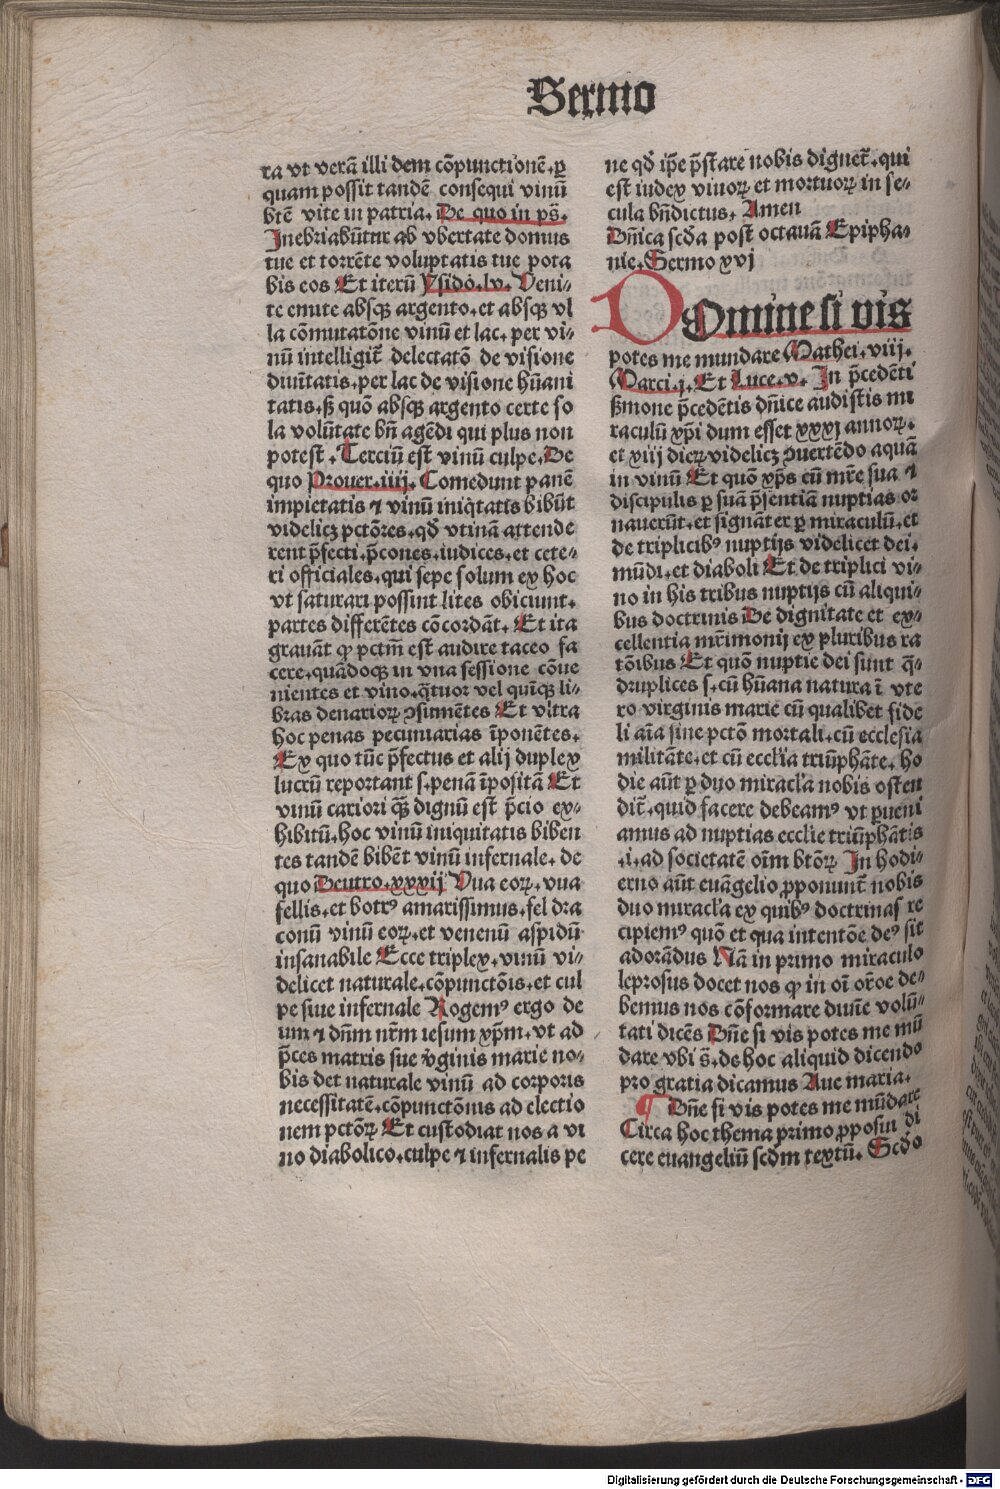 Sermo
ra vt verã illi dem cõpunctionẽ.ꝑ
quam possit tandẽ consequi vinũ
btẽ vite in patria. De quo in pš.
Inebriabũtur ab vbertate domus
tue et torrẽte voluptatis tue pota
bis eos Et iterũ Ysido.lv. Veni⸗
te emite absqꝫ argento.et absqꝫ vl
la cõmutatõne vinũ et lac. per vi⸗
nũ intelligit̃ delectatõ de visione
diuĩtatis.per lac de visione hũani
tatis.ß quõ absqꝫ argento certe so
la volũtate bñ agẽdi qui plus non
potest. Terciũ est vinũ culpe.De
quo Prouer.iiij. Comedunt panẽ
impietatis ⁊ vinũ iniq̃tatis bibũt
videlicꝫ pctõres.qđ vtinã attende
rent p̃fecti.p̃cones.iudices.et cete⸗
ri officiales.qui sepe solum ex hoc
vt saturari possint lites obiciunt.
partes differẽtes cõcordãt. Et ita
grauãt ꝙ pctm̃ est audire taceo fa
cere.quãdoqꝫ in vna sessione cõue
nientes et vino.q̃tuor vel quĩqꝫ li⸗
bras denarioꝝ ꝯsumẽtes Et vltra
hoc penas pecuniarias ĩponẽtes.
Ex quo tũc p̃fectus et alij duplex
lucrũ reportant s.penã ĩpositã Et
vinũ cariori q̃ꝫ dignũ est p̃cio ex⸗
hibitũ.hoc vinũ iniquitatis biben
tes tandẽ bibẽt vinũ infernale. de
quo Deutro.xxxij Vua eoꝝ.vua
fellis.et botrꝰ amarissimus.fel dra
conũ vinũ eoꝝ.et venenũ aspidũ
insanabile Ecce triplex.vinũ vi⸗
delicet naturale.cõpunctõis.et cul
pe siue infernale Rogemꝰ ergo de
um ⁊ dñm nr̃m iesum xp̃m.vt ad
p̃ces matris sue v̓ginis marie no⸗
bis det naturale vinũ ad corporis
necessitatẽ.cõpunctõnis ad electio
nem pctõꝝ Et custodiat nos a vi
no diabolico.culpe ⁊ infernalis pe
ne qđ ip̃e p̃stare nobis dignet̃.qui
est iudex viuoꝝ et mortuoꝝ in se⸗
cula bñdictus. Amen
Dñica scđa post octauã Epipha⸗
nie. Sermo xvj
DOmine si vis
potes me mundare Mathei.viij.
Marci.j. Et Luce.v. In p̃cedẽti
ßmone p̃cedẽtis dñice audistis mi
raculũ xp̃i dum esset xxxj annoꝝ.
et xiij dieꝝ videlicꝫ ꝯuertẽdo aquã
in vinũ Et quõ xp̃s cũ mr̃e sua ⁊
discipulis ꝑ suã p̃sentiã nuptias or
nauerũt.et signãter ꝑ miraculũ.et
de triplicibꝰ nuptijs videlicet dei.
mũdi.et diaboli Et de triplici vi⸗
no in his tribus nuptijs cũ aliqui⸗
bus doctrinis De dignitate et ex⸗
cellentia mr̃imonij ex pluribus ra
tõibus Et quõ nuptie dei sunt q̃⸗
druplices s.cũ hũana natura ĩ vte
ro virginis marie cũ qualibet fide
li aĩa sine pctõ mortali.cũ ecclesia
militãte.et cũ eccl'ia triũphãte. ho
die aũt ꝑ duo miracl'a nobis osten
dit̃.quid facere debeamꝰ vt ꝑueni
amus ad nuptias ecclie triũphãtis
.i.ad societatẽ oĩm btõꝝ In hodi⸗
erno aũt euãgelio ꝓponunt̃ nobis
duo miracl'a ex quibꝰ doctrinas re
cipiemꝰ quõ et qua intentõe deꝰ sit
adorãdus Nã in primo miraculo
leprosus docet nos ꝙ in oĩ or̃oe de⸗
bemus nos cõformare diuĩe volũ⸗
tati dicẽs Dñe si vis potes me mũ
dare vbi š.de hoc aliquid dicendo
pro gratia dicamus Aue maria.
¶ Dñe si vis potes me mũdare
Circa hoc thema primo ꝓposui di
cere euangeliũ scđm textũ. Scđo
Digitalisierung gefördert durch die Deutsche Forschungsgemeinschaft - DFG